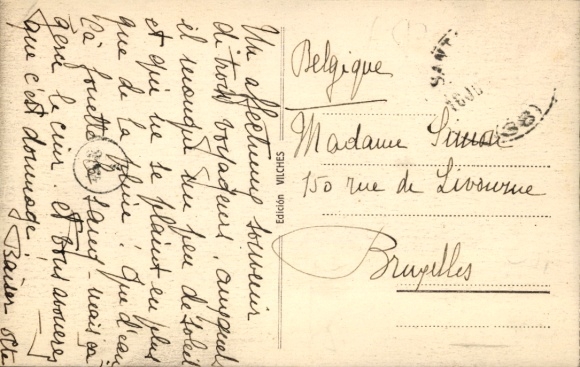 Un affectueux souvenir
de trois voyageurs, auxquels
il manque un peu de soleil
et qui ne se plaint en plus
que de la pluie! Que d'eau
Ça fouette sang - mais ça
le cuir. et vous avouerez
que c'est dommage!
Baiser
Edición VILCHES
Belgique
Madame Simon
150 rue de Livourne
Bruxelles